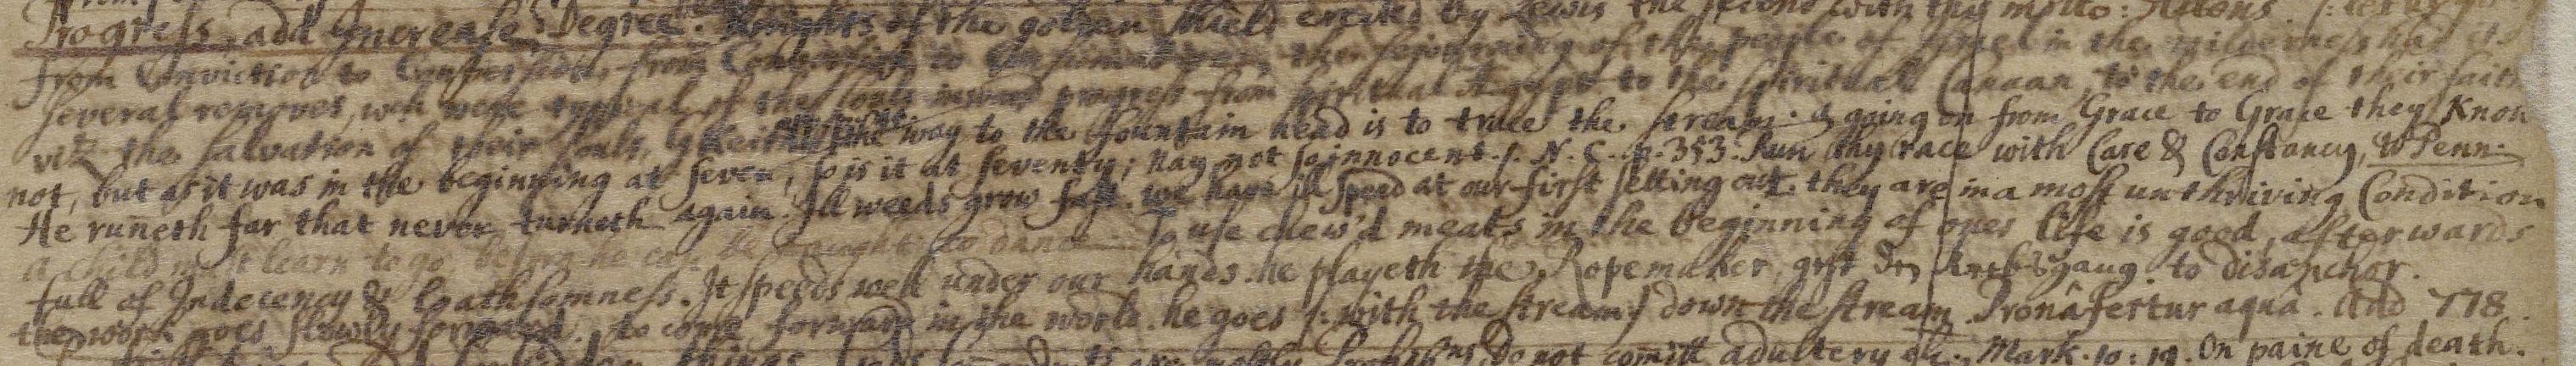 Progress, add Increase, Degree. Knights of the golden shield erected by Lewis the second with this motto: Allons
from Conviction to Conversion, from Conversion to the sojourning of the people of Israel in the wilderness had
several removes, wch were typical of the souls inward progress from spiritual Aegypt to the spiritual Canaan, to the end of their faith
vitz the salvation of their souls, GKeith the way to the fountain head is to trace the stream. & going on from Grace to Grace they know
not, but as it was in the beginning at seven, so is it at seventy; nay not so innocent. N. C. p. 353. Run thy race with Care & Constancy, WPenn.
He runeth far that never turneth again. Ill weeds grow fast. we have ill speed at our first setting out. they are in a most unthriving Condition
A Child must learn to go, before he can be taught to dance. To use chew'd meats in the beginning of ones life is good, afterwards
full of Indecency & Loathsomness. It speeds well under our hands. he playeth the Ropemaker, to disanchor.
the work goes slowly forward. to come forward in the world. he goes /: with the stream :/ down the stream. Pronâ fertur aquâ. Add 778.
things Do not comitt adultery &c. Mark. 10: 19. On paine of death.